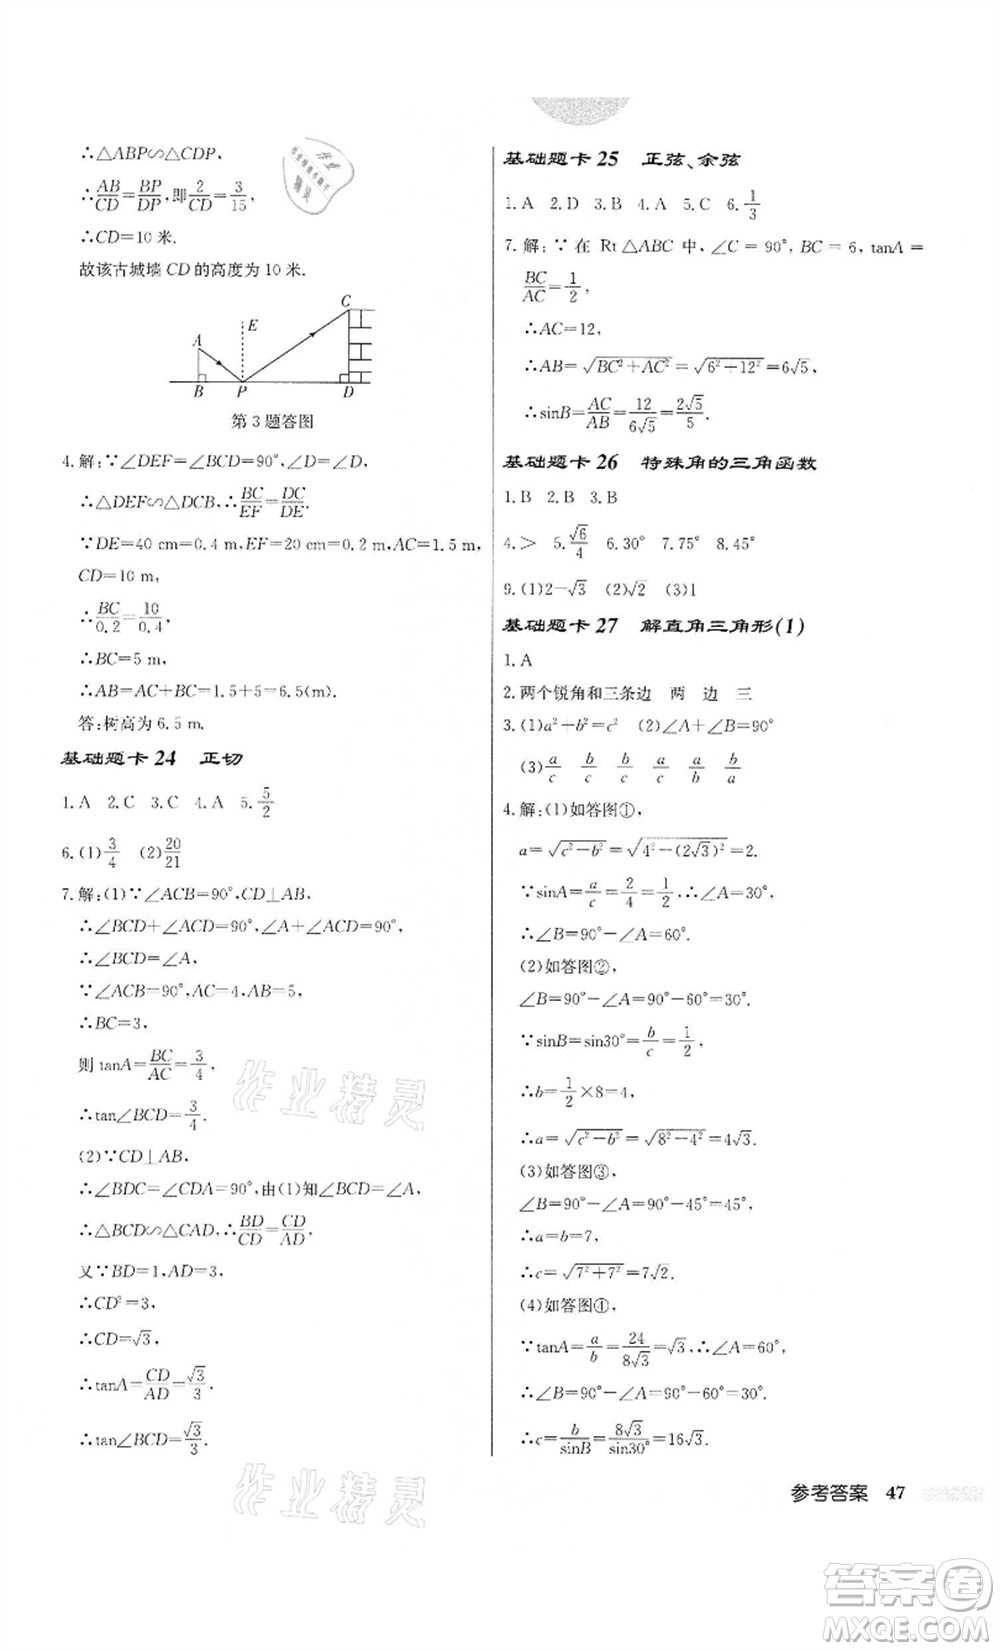 ∴△ABP∽△CDP,
∴AB/CD=BP/DP,即2/CD=3/15,
∴CD=10 米.
故该古城墙 CD 的高度为 10 米.
C
E
A
B P D
第 3 题答图
4.解:∵∠DEF=∠BCD=90°,∠D=∠D,
∴△DEF∽△DCB,∴BC/EF=DC/DE.
∵DE=40 cm=0.4 m,EF=20 cm=0.2 m,AC=1.5 m,
CD=10 m,
∴BC/0.2=10/0.4,
∴BC=5 m,
∴AB=AC+BC=1.5+5=6.5(m).
答:树高为 6.5 m.
基础题卡 24 正切
1.A 2.C 3.C 4.A 5.5/2
6.(1)3/4 (2)20/21
7.解:(1)∵∠ACB=90°,CD⊥AB,
∴∠BCD+∠ACD=90°,∠A+∠ACD=90°,
∴∠BCD=∠A,
∵∠ACB=90°,AC=4,AB=5,
∴BC=3,
则 tanA=BC/AC=3/4,
∴tan∠BCD=3/4.
(2)∵CD⊥AB,
∴∠BDC=∠CDA=90°,由(1)知∠BCD=∠A,
∴△BCD∽△CAD,∴BD/CD=CD/AD.
又∵BD=1,AD=3,
∴CD²=3,
∴CD=√3,
∴tanA=CD/AD=√3/3,
∴tan∠BCD=√3/3.
基础题卡 25 正弦、余弦
1.A 2.D 3.B 4.A 5.C 6.1/3
7.解:∵在 Rt△ABC 中,∠C=90°,BC=6,tanA=
BC/AC=1/2,
∴AC=12,
∴AB=√(BC²+AC²)=√(6²+12²)=6√5,
∴sinB=AC/AB=12/6√5=2√5/5.
基础题卡 26 特殊角的三角函数
1.B 2.B 3.B
4.> 5.√6/4 6.30° 7.75° 8.45°
9.(1)2-√3 (2)√2 (3)1
基础题卡 27 解直角三角形(1)
1.A
2.两个锐角和三条边 两 边 三
3.(1)a²+b²=c² (2)∠A+∠B=90°
(3)a/c b/c b/c a/c a/b b/a
4.解:(1)如答图①,
a=√(c²-b²)=√(4²-(2√3)²)=2.
∵sinA=a/c=2/4=1/2,∴∠A=30°,
∴∠B=90°-∠A=60°.
(2)如答图②,
∠B=90°-∠A=90°-60°=30°.
∵sinB=sin30°=b/c=1/2,
∴b=1/2×8=4,
∴a=√(c²-b²)=√(8²-4²)=4√3.
(3)如答图③,
∠B=90°-∠A=90°-45°=45°,
∴a=b=7,
∴c=√(7²+7²)=7√2.
(4)如答图④,
∵tanA=a/b=24/8√3=√3,∴∠A=60°,
∴∠B=90°-∠A=90°-60°=30°,
∴c=b/sinB=8√3/sin30°=16√3.
参考答案 47
作业精灵
作业精灵
答案圈
MXQE.COM